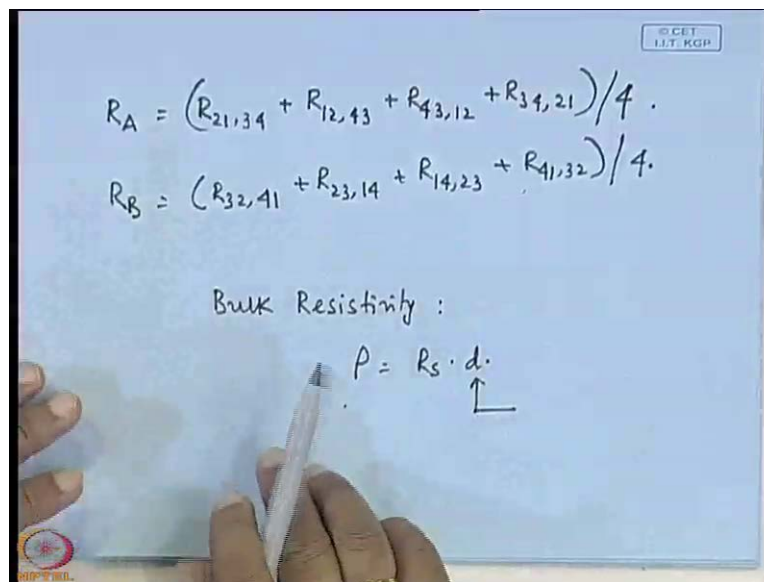 © CET
I.I.T. KGP
R_A = (R_{21,34} + R_{12,43} + R_{43,12} + R_{34,21})/4.
R_B = (R_{32,41} + R_{23,14} + R_{14,23} + R_{41,32})/4.
Bulk Resistivity :
ρ = R_S · d.
NPTEL